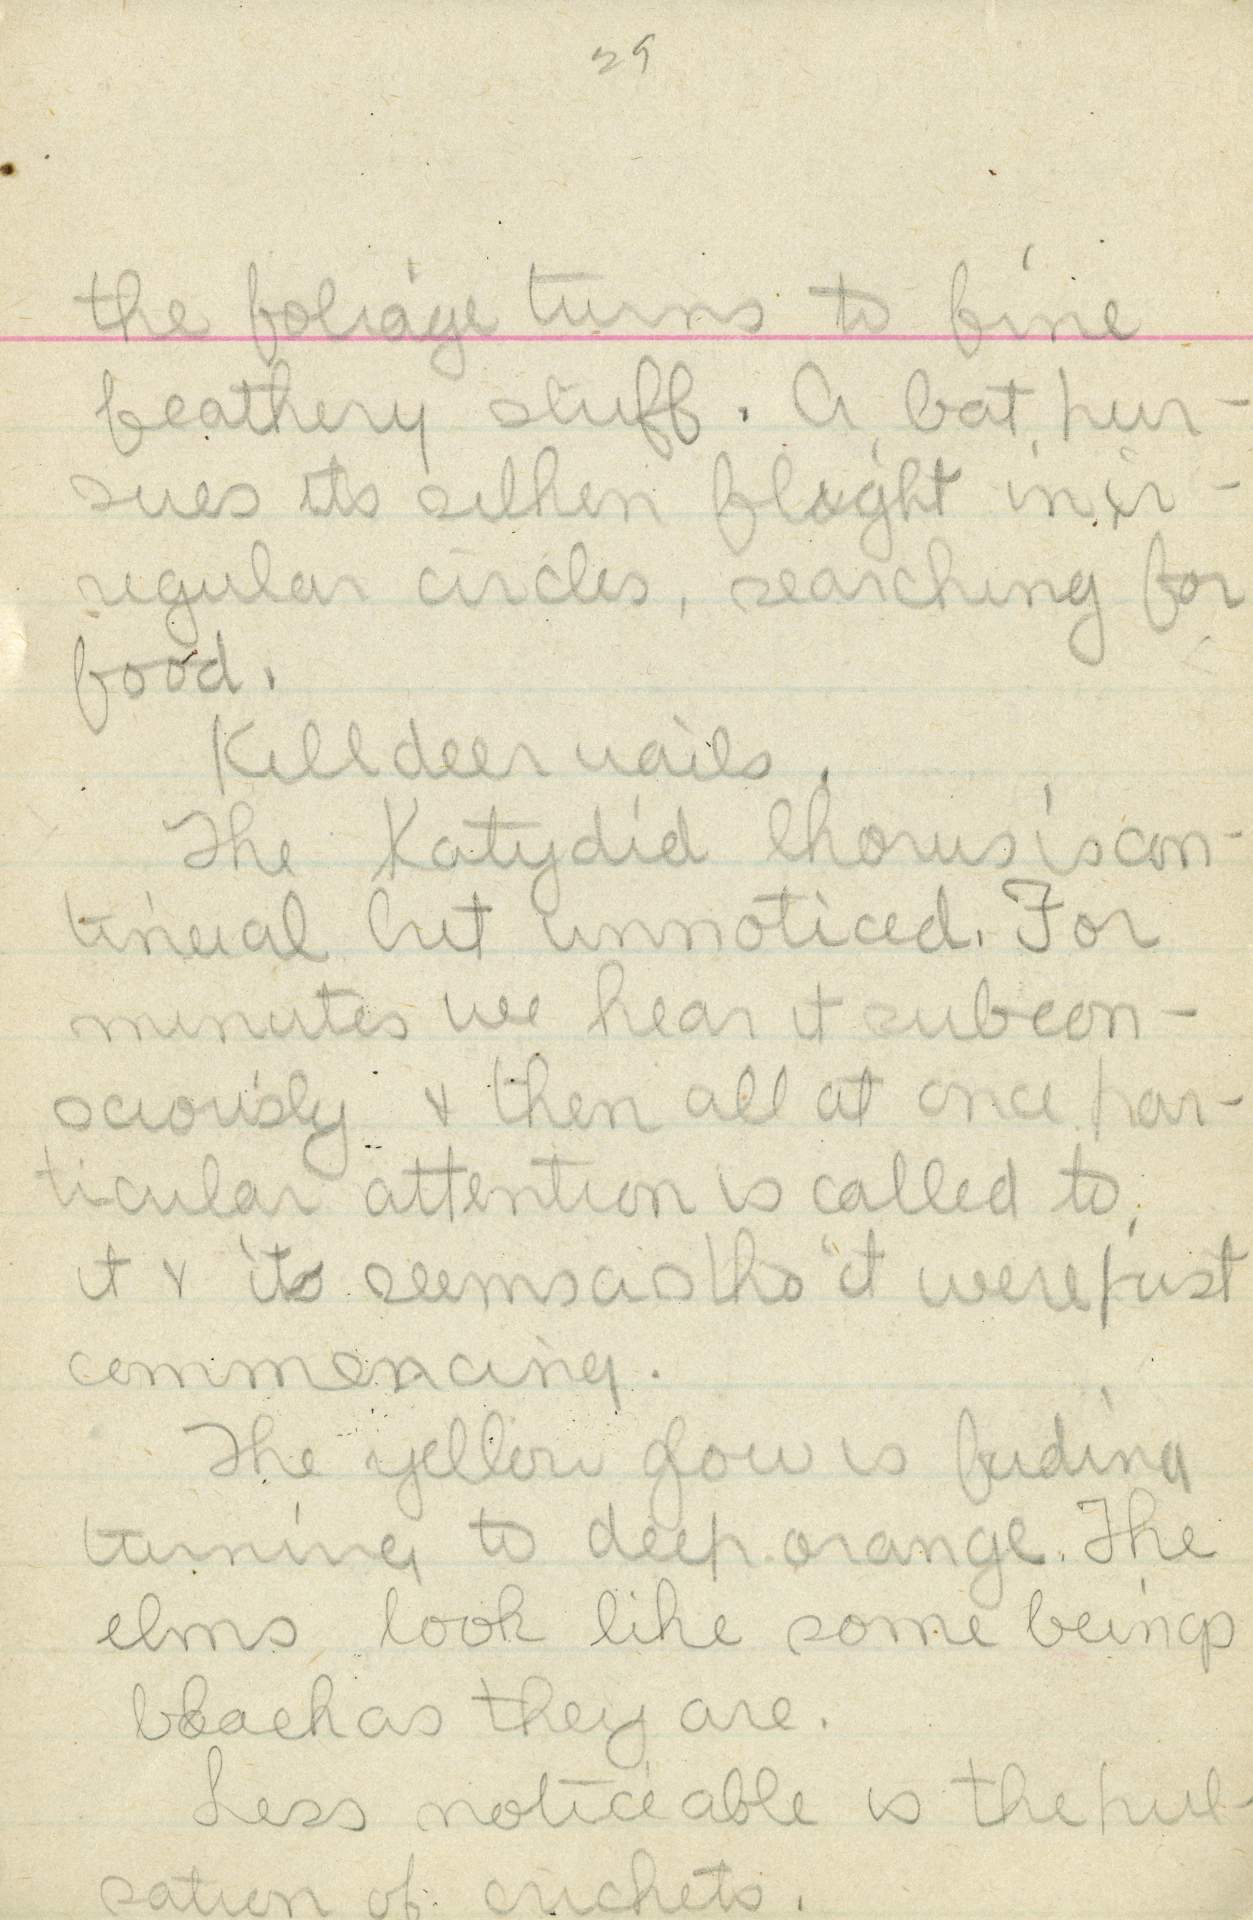 29
the foliage turns to fine
feathery stuff. A bat pur-
sues its silken flight in ir-
regular circles, searching for
food.
Killdeer wails.
The Katydid Chorus is con-
tinual but unnoticed. For
minutes we hear it subcon-
sciously & then all at once par-
ticular attention is called to
it & its seems as tho it were just
commencing.
The yellow glow is fading
turning to deep orange. The
elms look like some beings
black as they are.
Less noticeable is the pul-
sation of crickets.